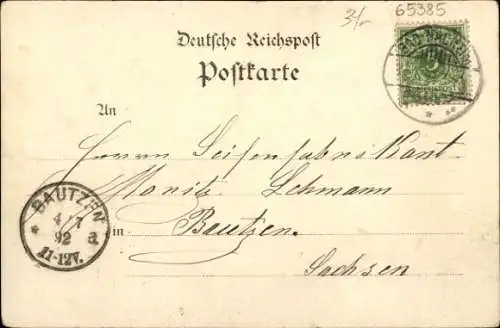 3/-
65385
Deutsche Reichspost
Postkarte
An
Herrn Seifenfabrikant
Moritz Lehmann
in Bautzen
Sachsen
BAUTZEN
4/7
92
a
11-12V.